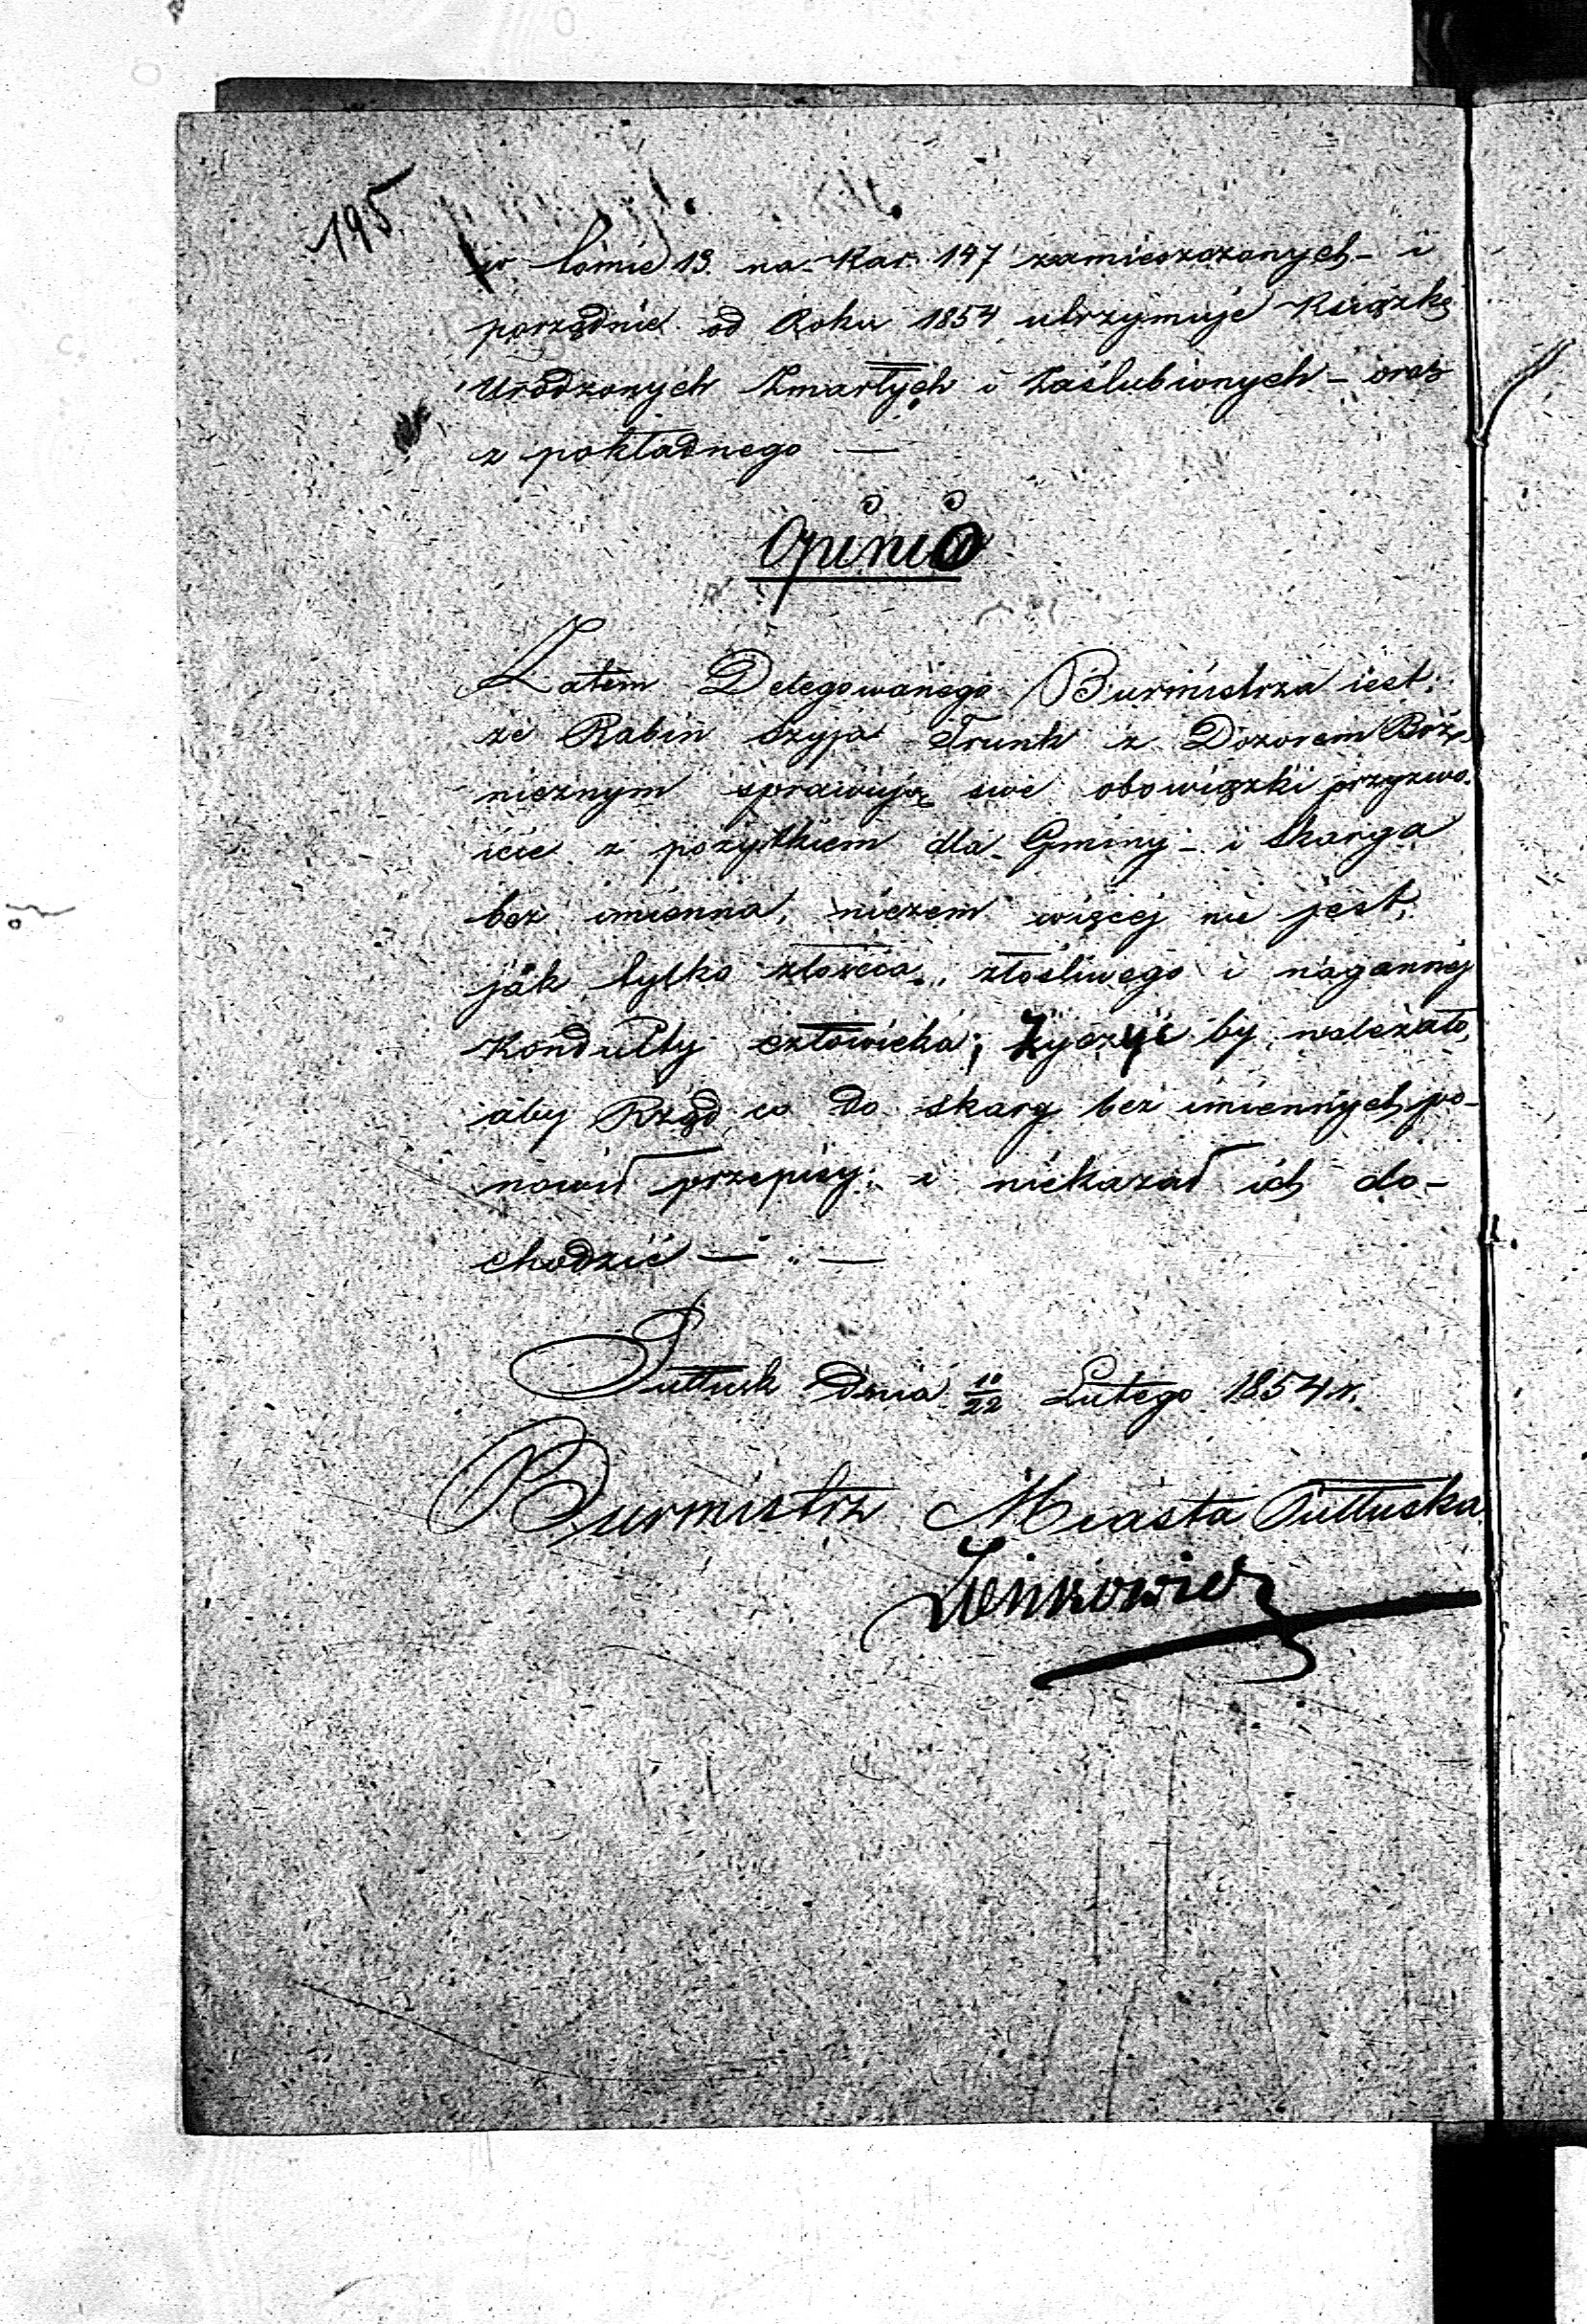 195
w tomie 13. na Kar. 147 zamieszczonych - i
porządnie od Roku 1854 utrzymuje Książkę
Urodzonych Zmarłych i Zaślubionych - oraz
z pokładnego —
Opinia
Zatem Delegowanego Burmistrza iest,
że Rabin Szyja Trunk z Dozorem Bóż-
nicznym sprawują swe obowiązki przyzwo-
icie z pożytkiem dla Gminy - i skarga
bez imienna, niczem więcej nie jest,
jak tylko złośliwego i nagannej
Kondulty człowieka; życzyć by należało,
aby Rząd, co do skarg bez imiennych, po-
nowił przepisy i niekazał ich do-
chodzić — " —
Pułtusk dnia 10/22 Lutego 1854 r.
Burmistrz Miasta Pułtuska